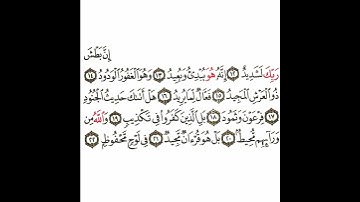 إِنَّ بَطْشَ
رَبِّكَ لَشَدِيدٌ ١٢ إِنَّهُۥ هُوَ يُبْدِئُ وَيُعِيدُ ١٣ وَهُوَ ٱلْغَفُورُ ٱلْوَدُودُ ١٤
ذُو ٱلْعَرْشِ ٱلْمَجِيدُ ١٥ فَعَّالٌ لِّمَا يُرِيدُ ١٦ هَلْ أَتَىٰكَ حَدِيثُ ٱلْجُنُودِ
١٧ فِرْعَوْنَ وَثَمُودَ ١٨ بَلِ ٱلَّذِينَ كَفَرُوا۟ فِى تَكْذِيبٍ ١٩ وَٱللَّهُ مِن
وَرَآئِهِم مُّحِيطٌۢ ٢٠ بَلْ هُوَ قُرْءَانٌ مَّجِيدٌ ٢١ فِى لَوْحٍ مَّحْفُوظٍۭ ٢٢